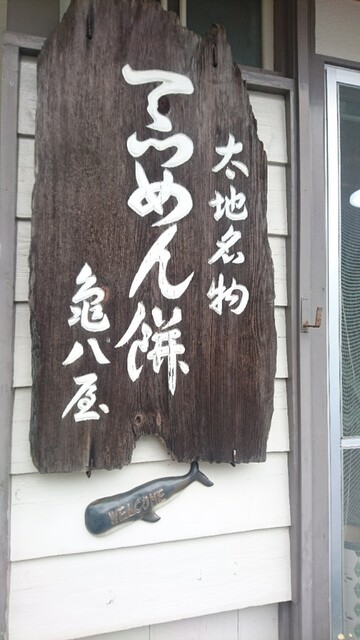 太地名物
てつめん餅
亀八屋
WELCOME